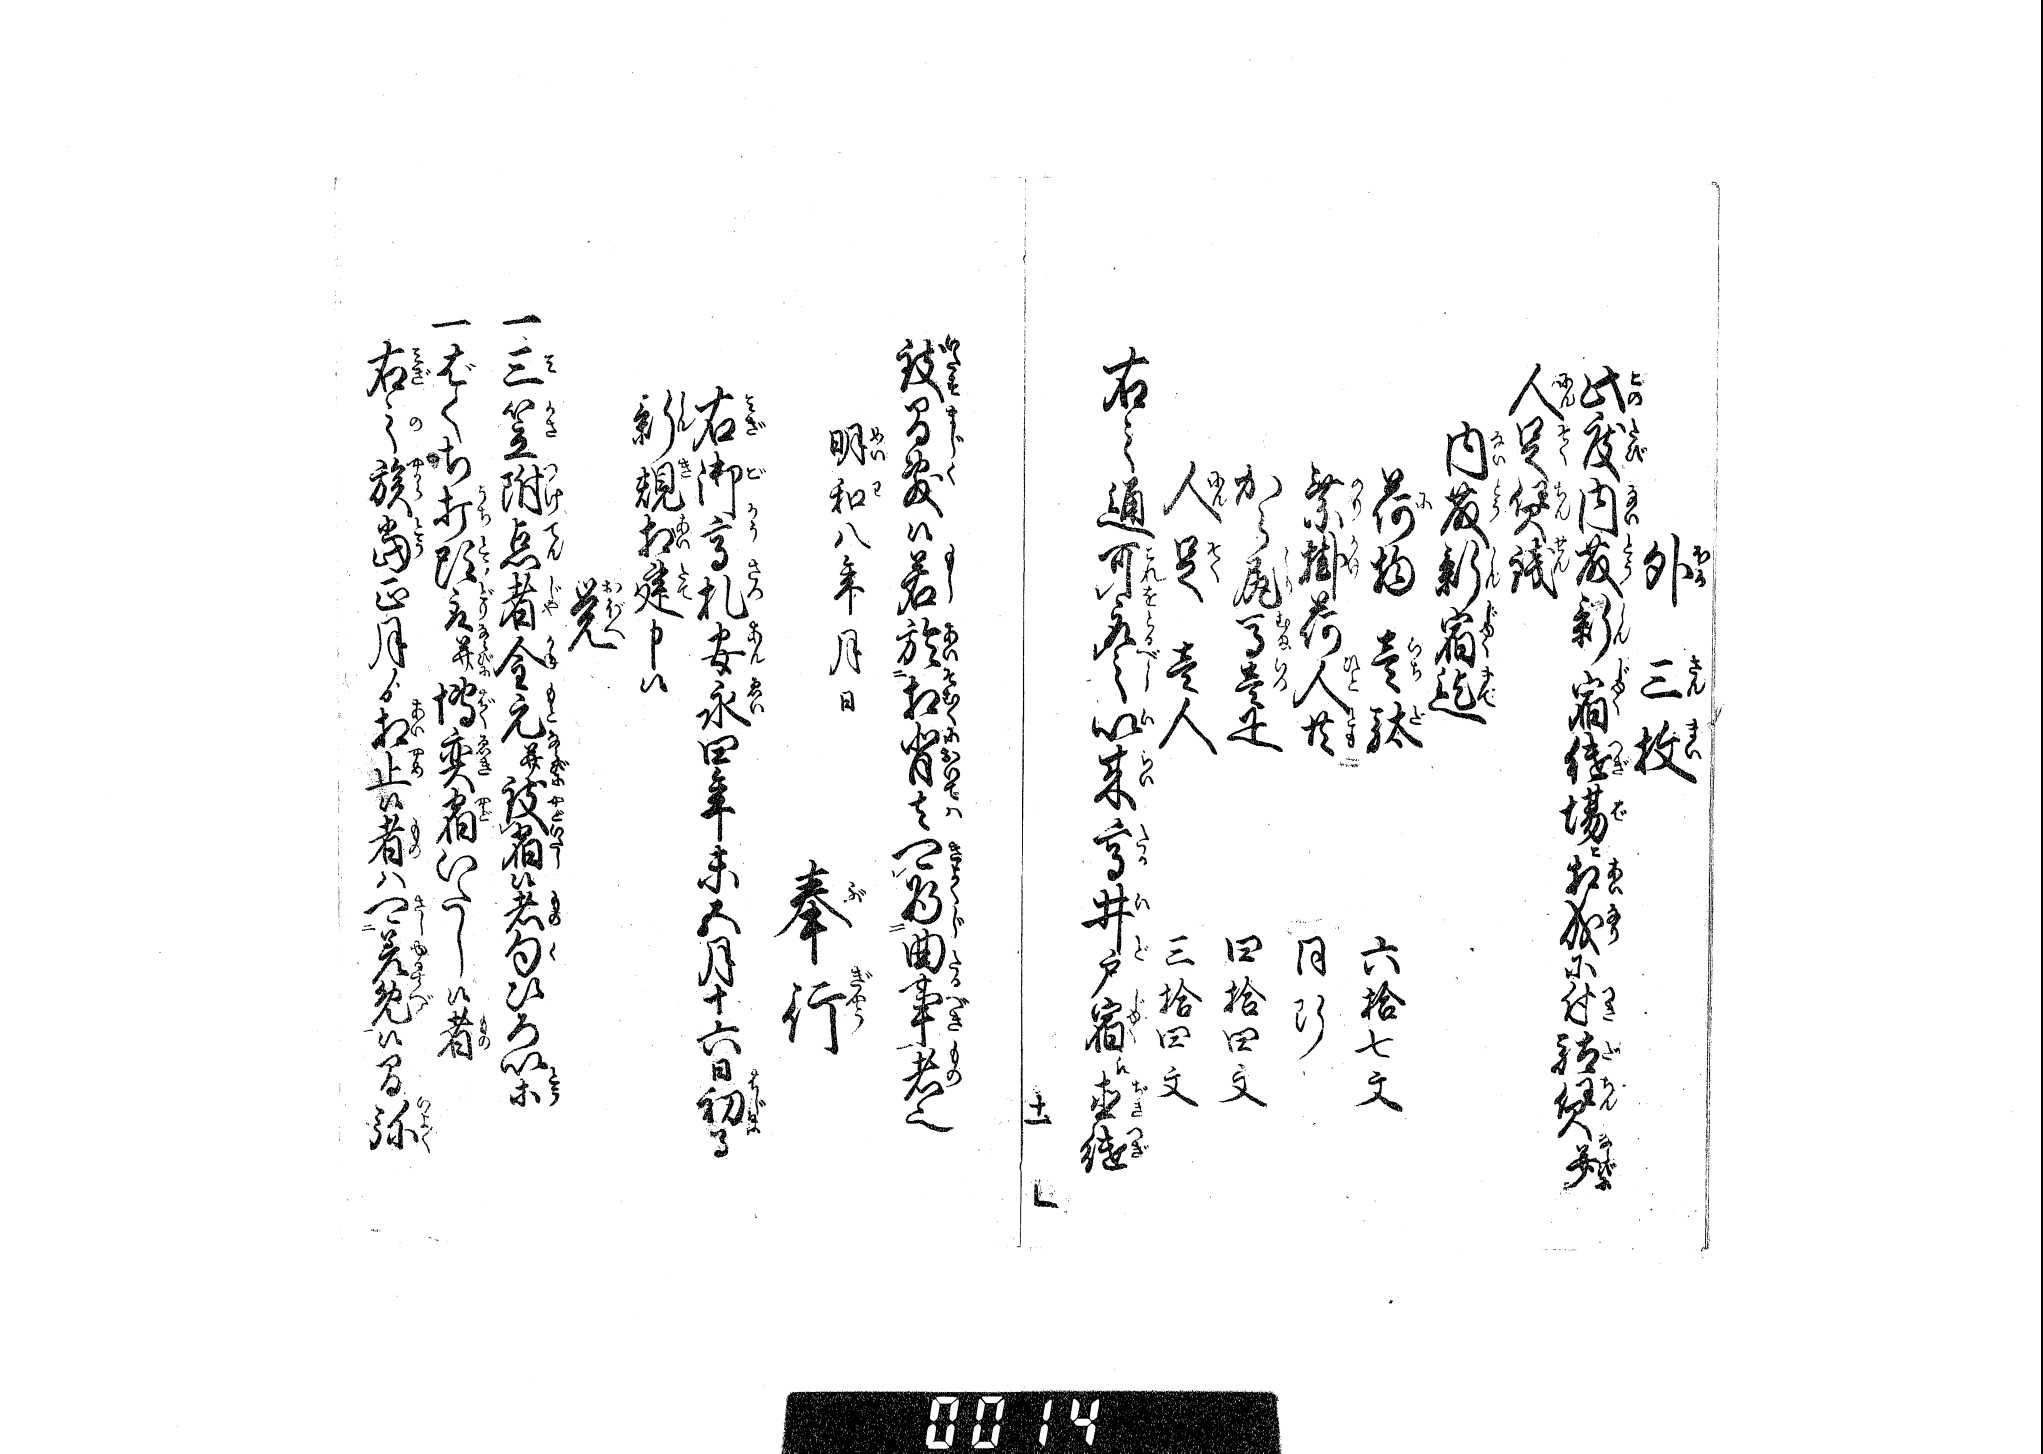 外三枚
此度内藤新宿継場ニ相成候ニ付駄賃并
人足賃銭
内藤新宿迄
荷物壱駄　六拾七文
乗掛荷人共　同断
から尻馬壱疋　四拾四文
人足壱人　三拾四文
右之通可取之以来高井戸宿江直継
十一
致間敷候若於相背ハ可為曲事者也
明和八年月日
奉行
右御高札安永四年未五月十六日初而
新規相建申候
覚
一三笠附点者金元并致宿候者句ひろい等
一ばくち打頭取并博奕宿いたし候者
右之族当正月ゟ相止候者ハ可差免候間弥
0014